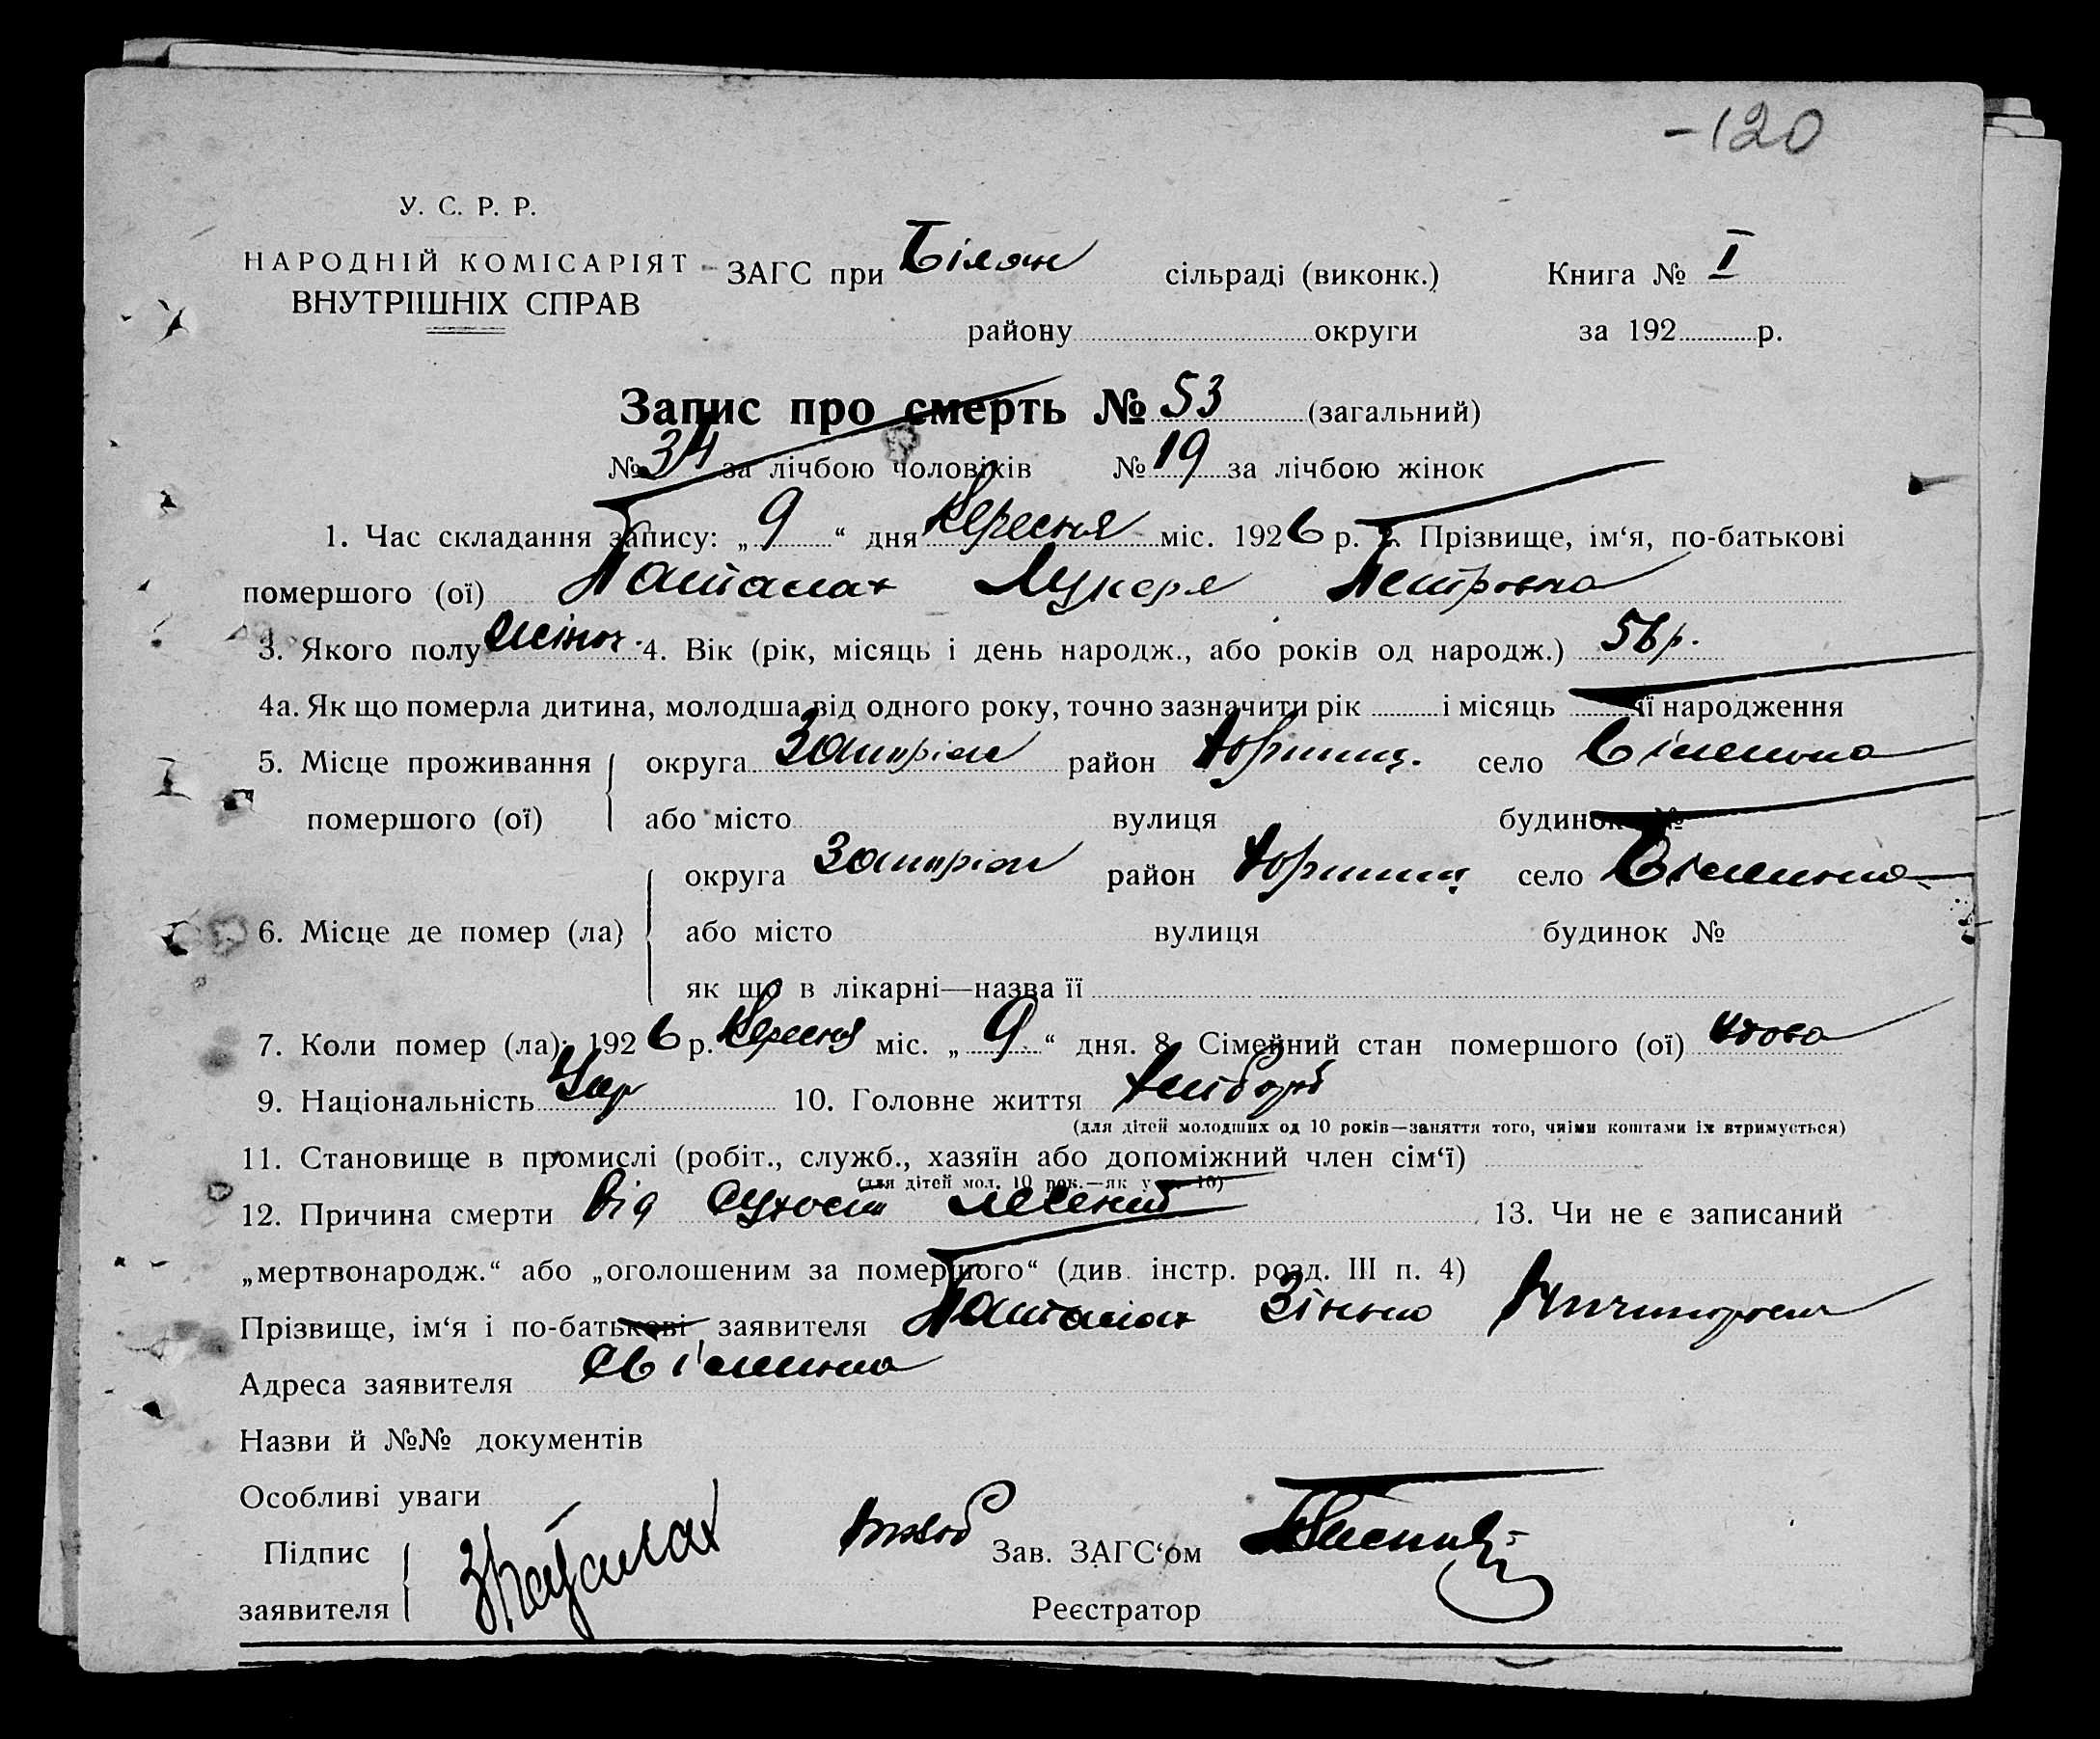 -120
У. С. Р. Р.
НАРОДНІЙ КОМІСАРІЯТ ВНУТРІШНІХ СПРАВ
ЗАГС при Білян сільраді (виконк.) Книга № I
району округи за 192 р.
Запис про смерть № 53 (загальний)
№ 34 за лічбою чоловіків № 19 за лічбою жінок
1. Час складання запису: „9“ дня Вересня міс. 1926 р. 2. Прізвище, ім‘я, по-батькові
помершого (ої) Паталах Лукеря Петровна
3. Якого полу жіноч. 4. Вік (рік, місяць і день народж., або років од народж.) 56 р.
4а. Як що померла дитина, молодша від одного року, точно зазначити рік і місяць її народження
5. Місце проживання помершого (ої) округа Запоріж район село
або місто вулиця будинок №
6. Місце де помер (ла) округа Запоріж район село
або місто вулиця будинок №
як що в лікарні—назва її
7. Коли помер (ла): 1926 р. Вересня міс. „9“ дня. 8. Сімейний стан помершого (ої) вдова
9. Національність Укр 10. Головне життя хлібороб
(для дітей молодших од 10 років—заняття того, чиїми коштами їх втримується)
11. Становище в промислі (робіт., служб., хазяїн або допоміжний член сім‘ї)
(для дітей мол. 10 рок.—як у п. 10)
12. Причина смерти Від сухот легенів 13. Чи не є записаний
„мертвонародж.“ або „оголошеним за помершого“ (див. інстр. розд. III п. 4)
Прізвище, ім‘я і по-батькові заявителя Паталах Зінько
Адреса заявителя
Назви й №№ документів
Особливі уваги
Підпис заявителя ЗПаталах Зав. ЗАГС‘ом
Реєстратор